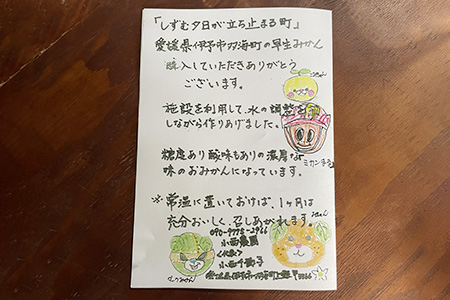 「しずむ夕日が立ち止まる町」
愛媛県伊予市双海町の早生みかん
購入していただきありがとう
ございます。
施設を利用して、水の調整を
しながら作りあげました。
ミカンまる
糖度あり酸味もありの濃厚な
味のおみかんになっています。
※常温に置いておけば、1ヶ月は
充分おいしく、召しあがれます。
小西農園